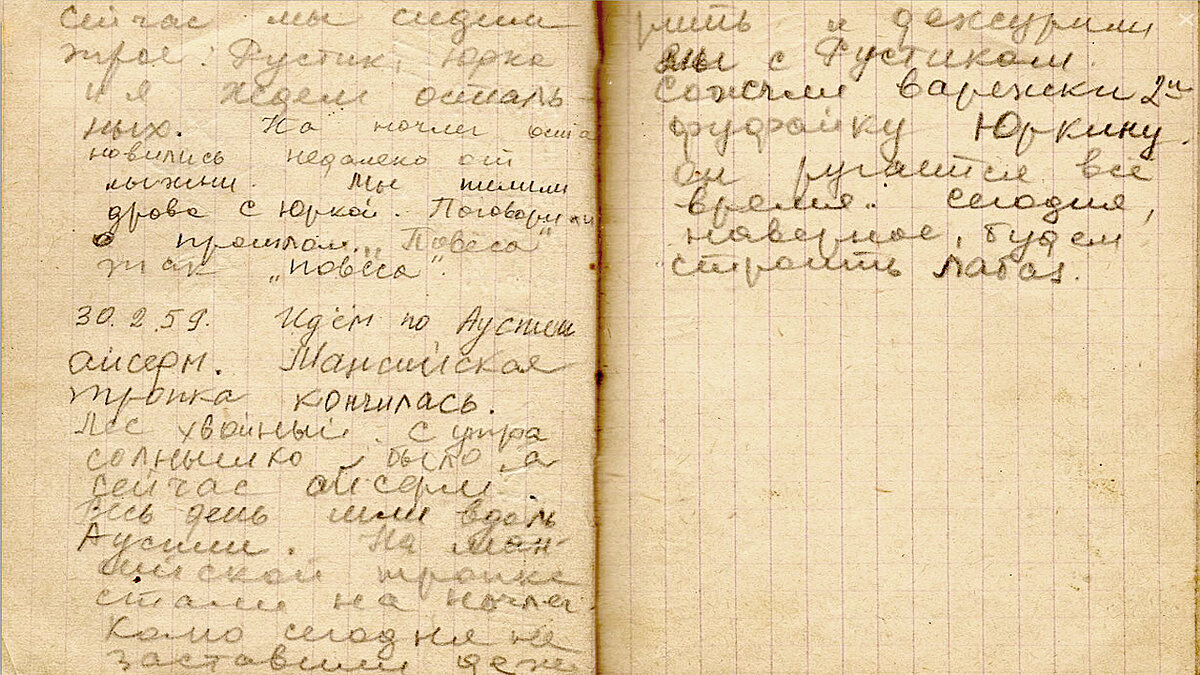 сейчас мы сидим
трое: Рустик, Юрка
и я Ждем осталь-
ных. На ночлег оста
новились недалеко от
лыжни. Мы пилили
дрова с Юркой. Поговорили
о прошлом. „Повеса"
так „повеса".
30.2.59. Идём по Ауспии
айсерм. Мансийская
тропка кончилась.
Лес хвойный. с утра
солнышко было, а
сейчас айсерм
Весь день шли вдоль
Ауспии. На ман-
сийской тропке
стали на ночлег.
сегодня не
заставили дежу
рить и дежурили
мы с Рустиком.
Сожгли варежки 2ую
фуфайку Юркину.
он ругается всё
время. Сегодня,
наверное, будем
строить лабаз.